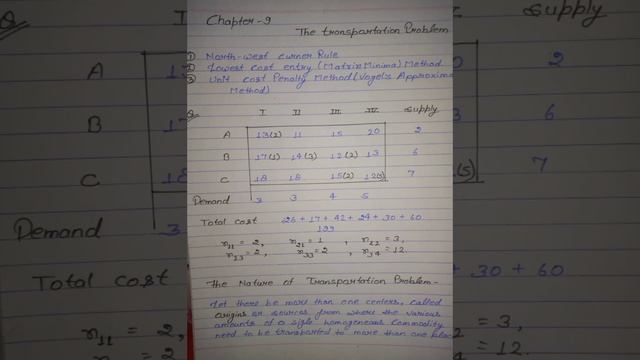 Chapter-9
The transportation Problem
① North-west corner Rule
② Lowest cost entry (Matrix Minima) Method
③ Unit cost Penalty Method (Vogel's Approxima
Method)
I II III IV supply
A 13(2) 11 15 20 2
B 17(1) 14(3) 12(2) 13 6
C 18 18 15(2) 12(5) 7
Demand 3 3 4 5
Total cost 26 + 17 + 42 + 24 + 30 + 60
199
x11 = 2, x21 = 1, x22 = 3,
x23 = 2, x33 = 2, x34 = 12.
The Nature of Transportation Problem-
Let there be more than one centers, called
origins or sources from where the various
amounts of a sigle homogeneous Commodity
need to be transported to more than one place